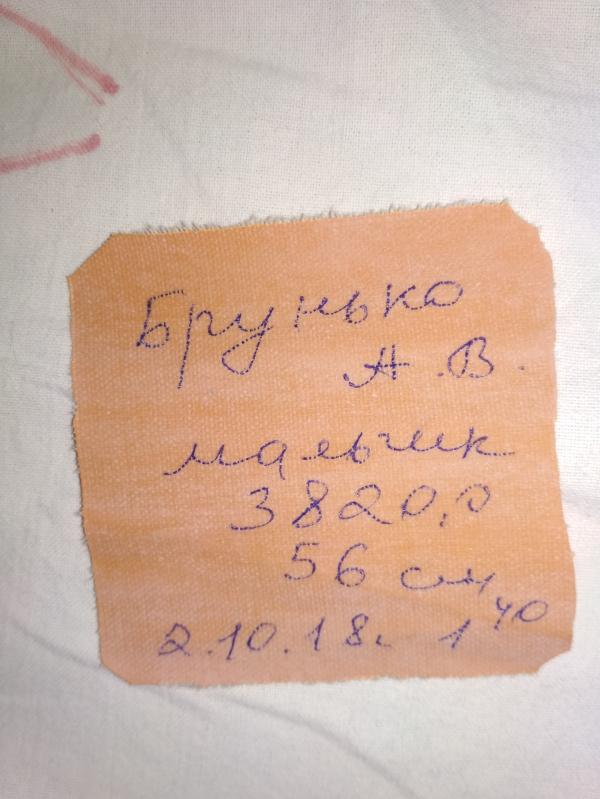 Брунько
А.В.
мальчик
3820,0
56 см
2.10.18г. 1 40